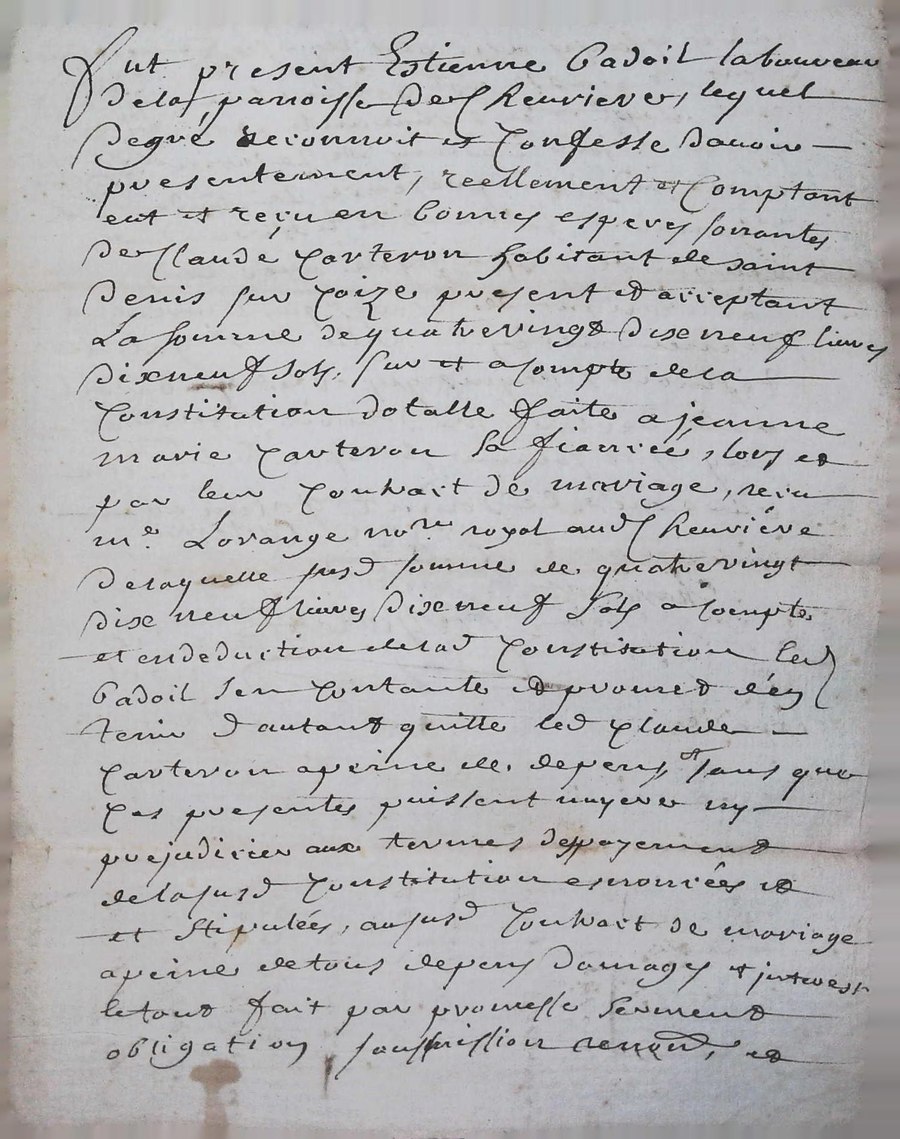 Fut present Estienne Badoil laboureur
dela parroisse de Cheurieres, lequel
degré reconnoit et Confesse dauoir
presentement, reellement et Comptant
eut et reçu en bonnes especes sonantes
de Claude Carteron habitant de saint
Denis sur Coize present et acceptant
La somme de quatrevingt dixe neuf liures
dixneuf sols, sur et a compte dela
Constitution dotalle faite a jeanne
marie Carteron sa fiancée, lors et
par leur Contract de mariage, recu
me. Lorange nore. royal aud Cheuriéres
delaquelle susd somme de quatrevingt
dixe neuf liures dixe neuf sols a compte
et en deduction delad Constitution led
Badoil sen Contante et promet d'en
tenir d'autant quitte led Claude
Carteron a peine de depens, et sans que
Ces presentes puissent nuyre ny
prejudicier aux termes de payement
delasusd Constitution enoncées et
et stipulées, aususd Contract de mariage
a peine de tous depens domages et jnterest
letout fait par promesse serment
obligation soubmission renond, et